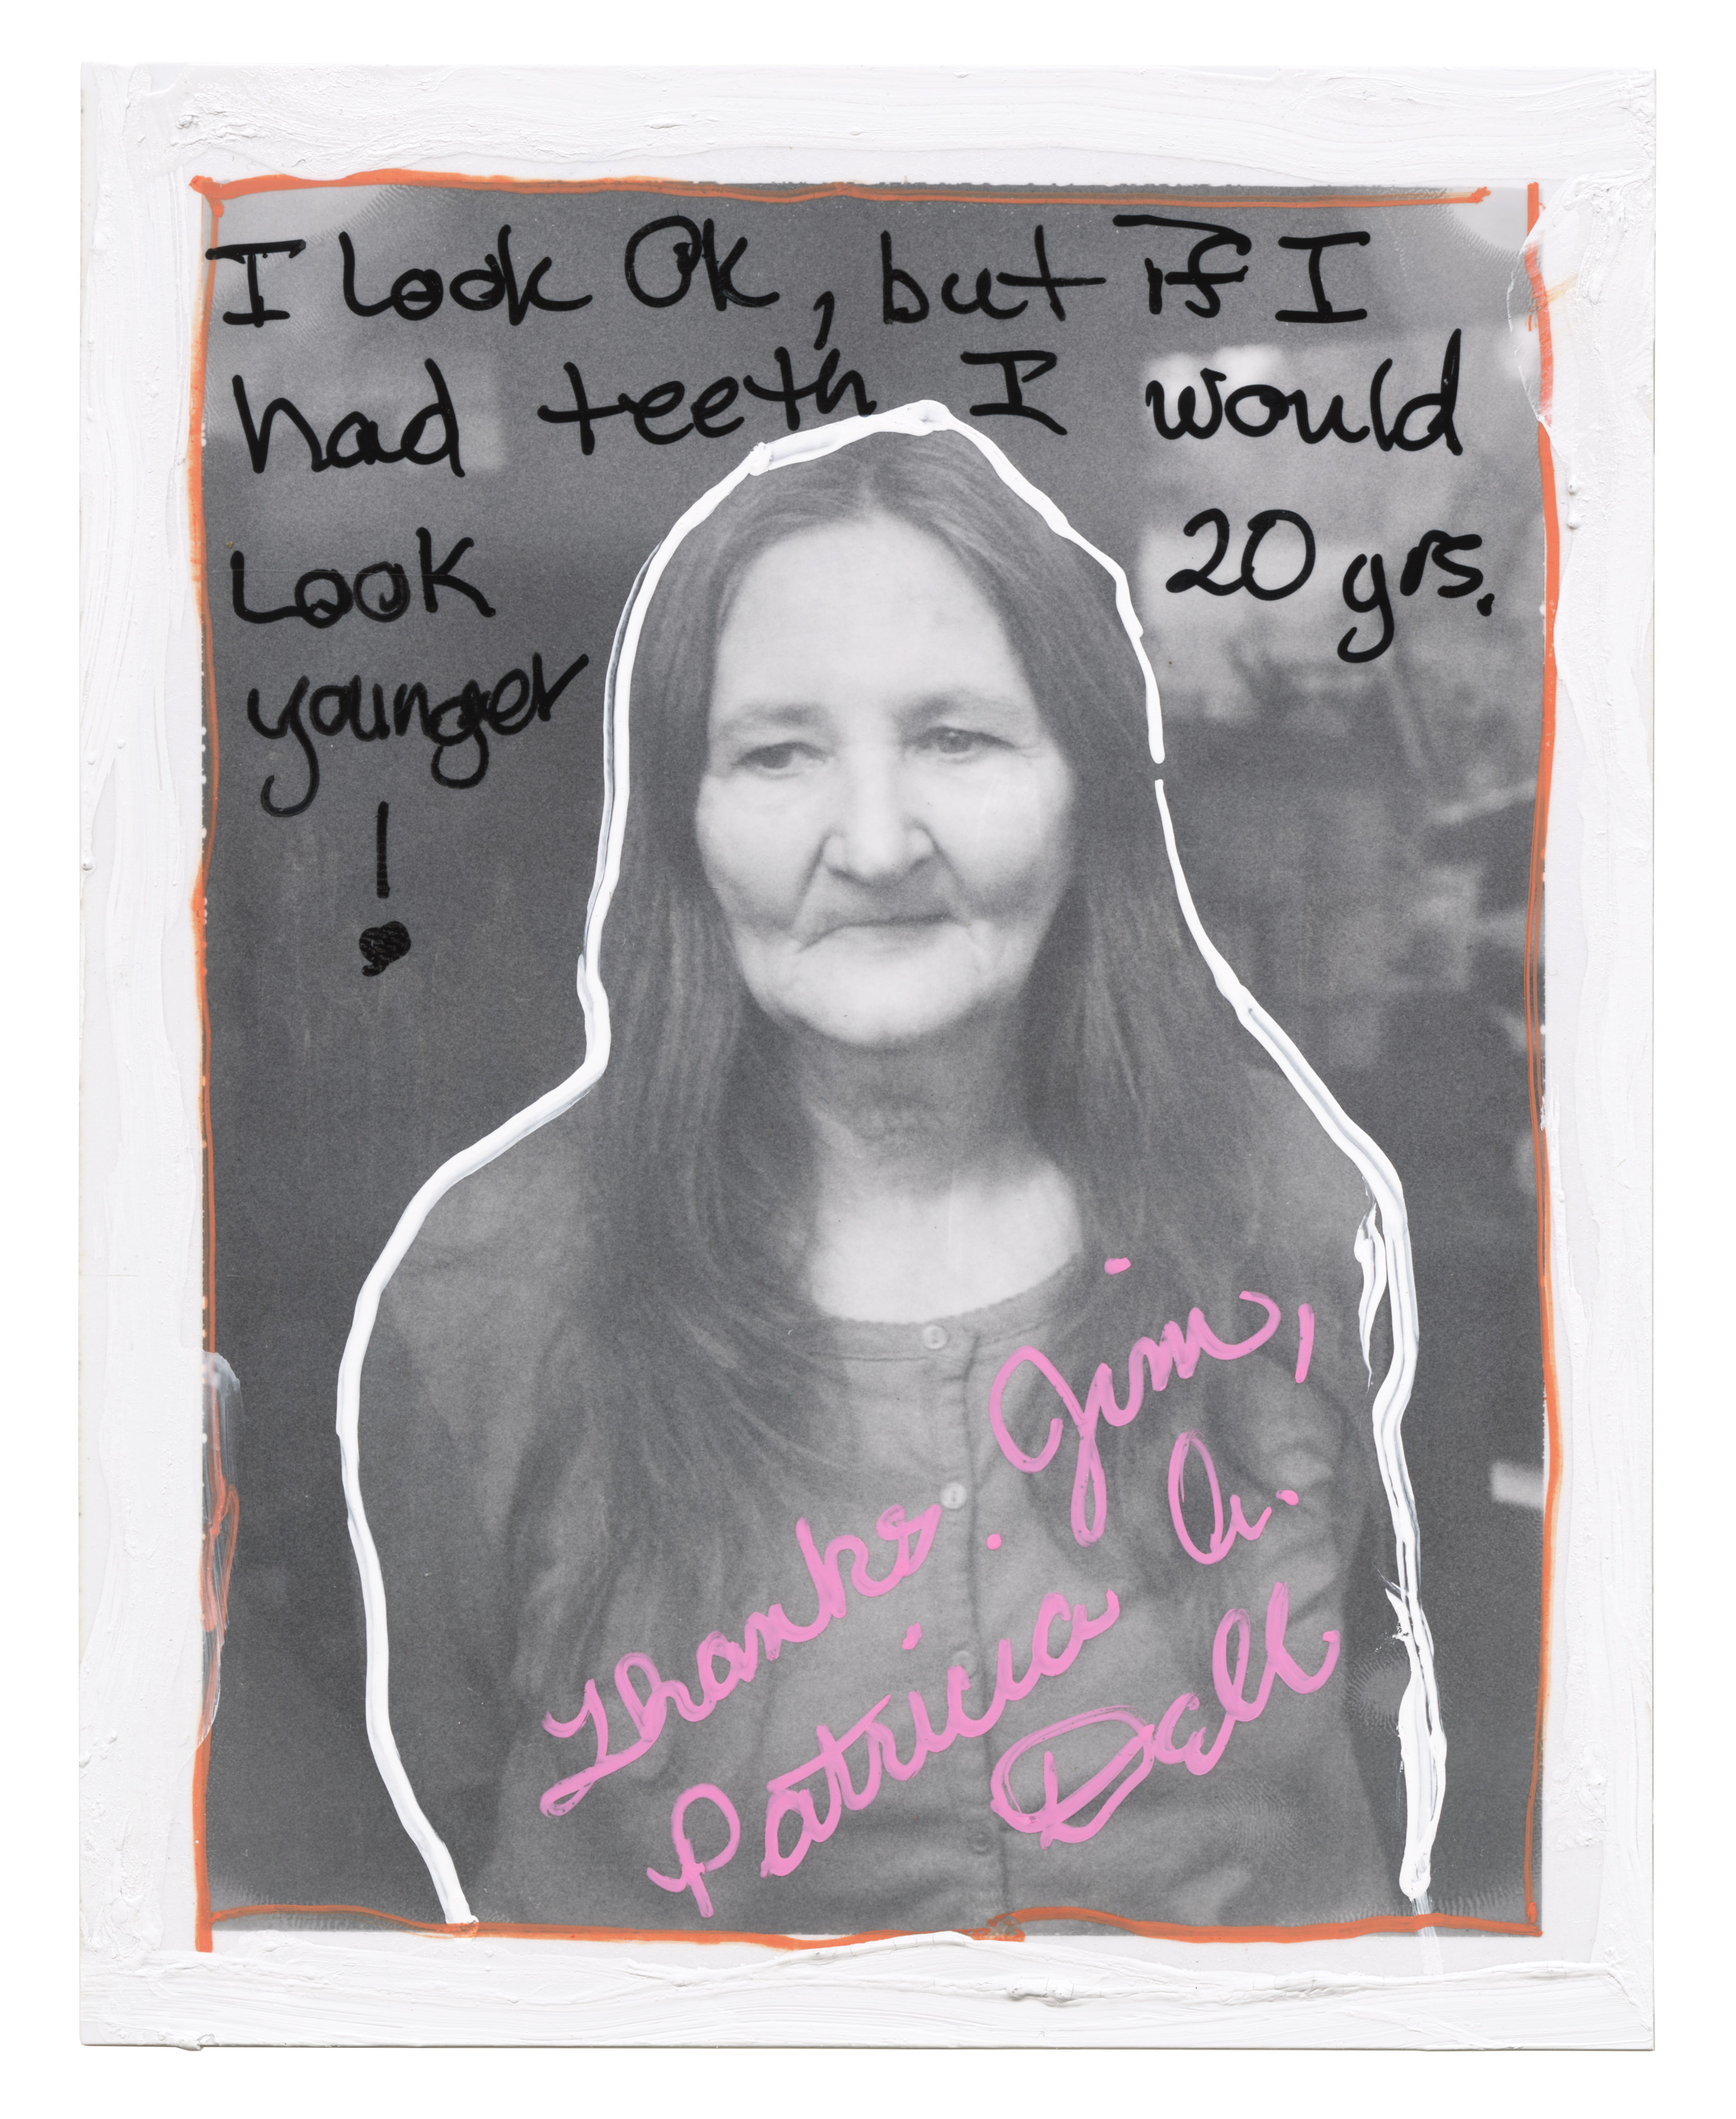 I Look Ok, but if I
had teeth I would
Look 20 yrs.
younger
!
Thanks. Jim,
Patricia A.
Dall